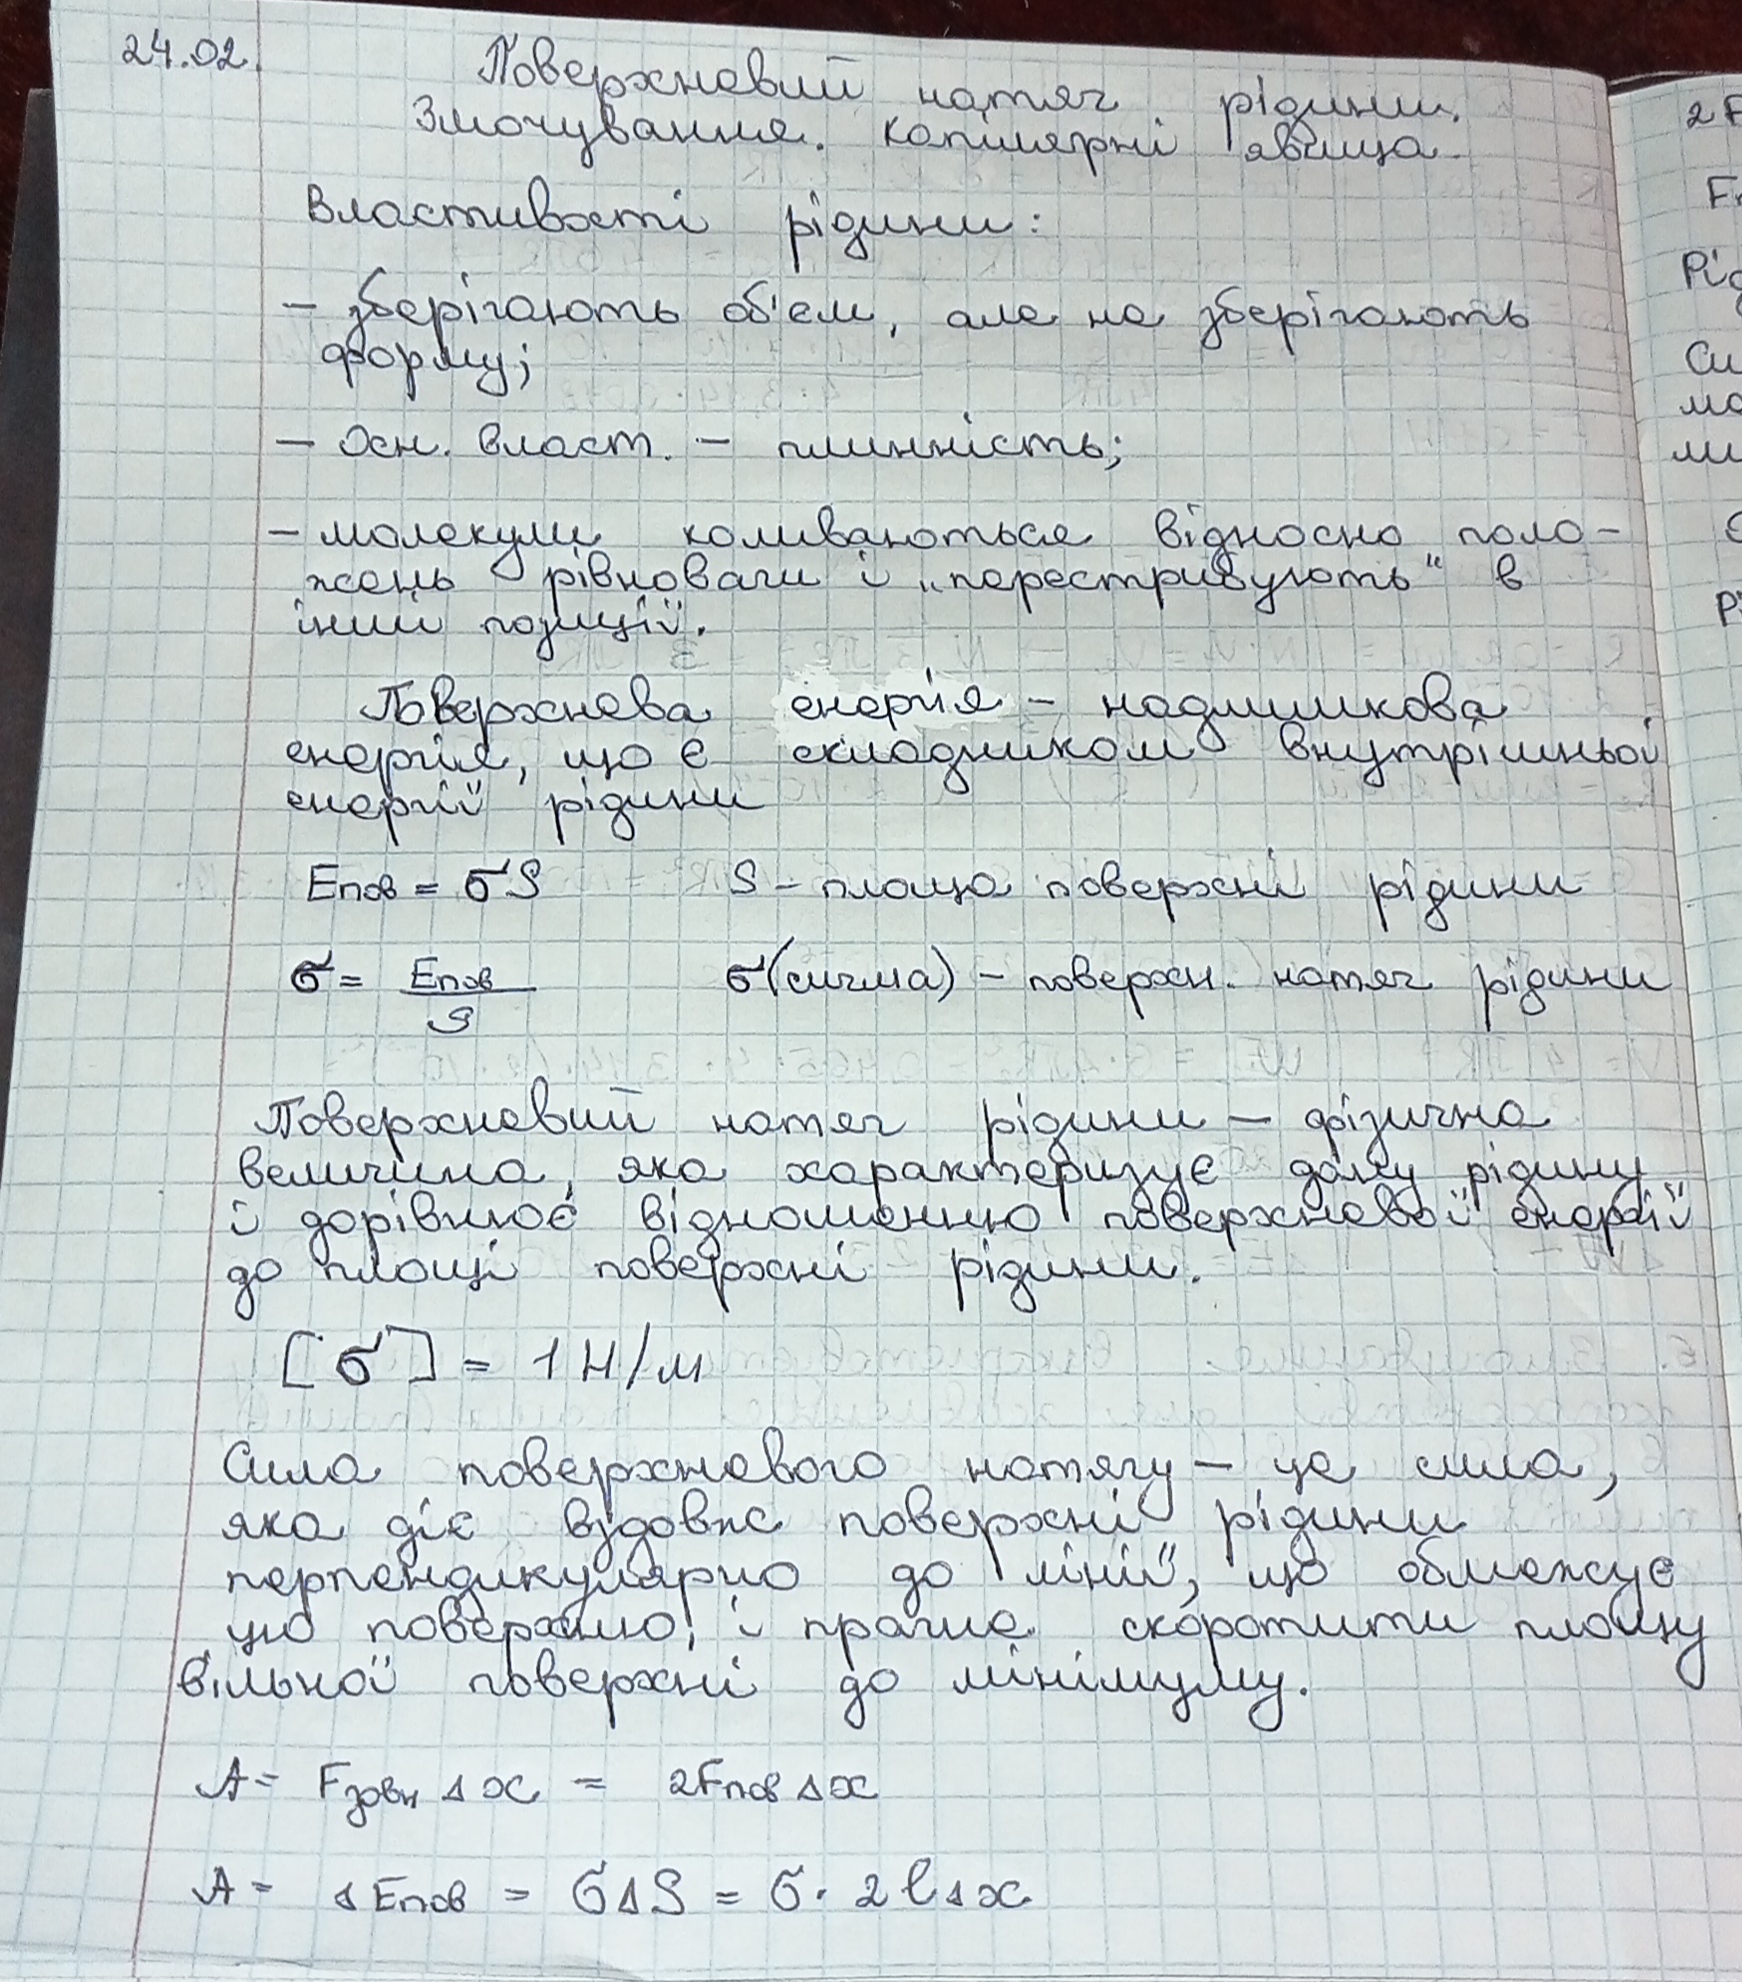 24.02.
Поверхневий натяг рідини.
Змочування. Капілярні явища.
Властивості рідини:
– зберігають об'єм, але не зберігають
форму;
– Осн. власт. – плинність;
– молекули коливаються відносно поло-
жень рівноваги і „перестрибують" в
інші позиції.
Поверхнева енергія – надлишкова
енергія, що є складником внутрішньої
енергії рідини
Eпов = σS S – площа поверхні рідини
σ = Eпов / S σ (сигма) – поверхн. натяг рідини
Поверхневий натяг рідини – фізична
величина, яка характеризує дану рідину
і дорівнює відношенню поверхневої енергії
до площі поверхні рідини.
[σ] = 1 Н/м
Сила поверхневого натягу – це сила,
яка діє вздовж поверхні рідини
перпендикулярно до лінії, що обмежує
цю поверхню, і прагне скоротити площу
вільної поверхні до мінімуму.
A = Fзовн Δx = 2Fпов Δx
A = ΔEпов = σΔS = σ · 2lΔx